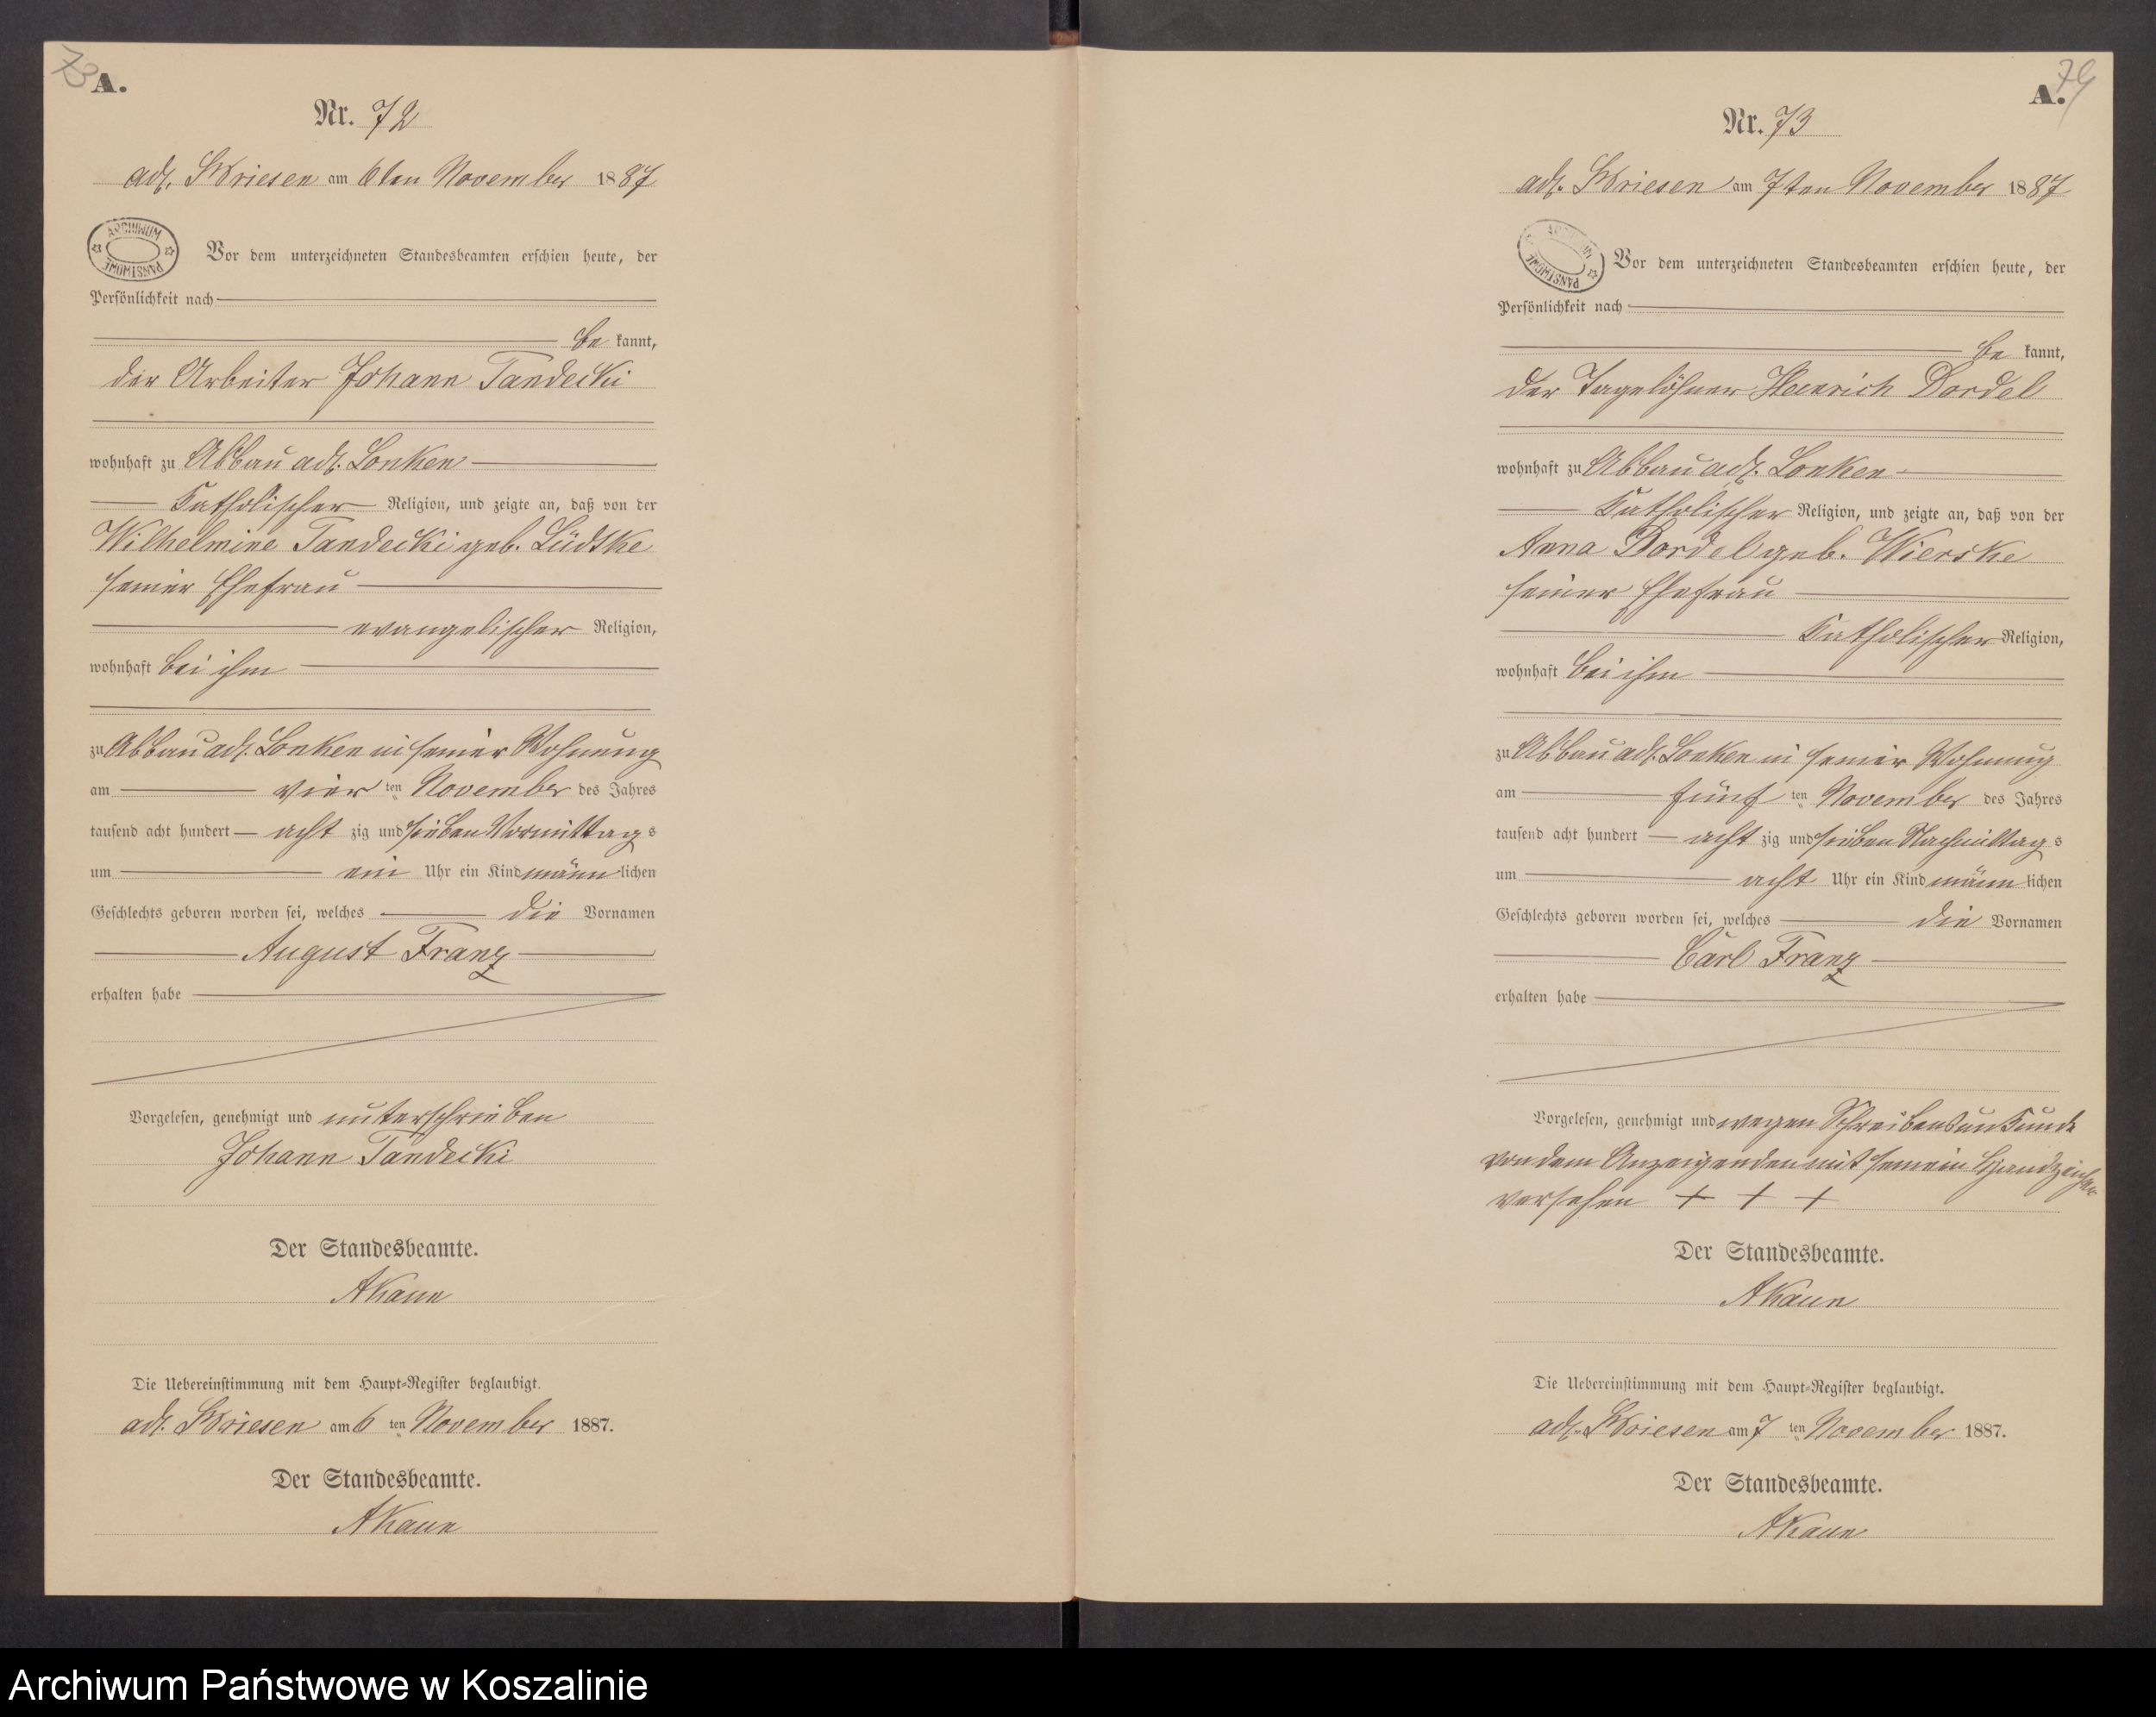 73
A.
Nr. 72
adl. Briesen am 6ten November 1887
ARCHIWUM PAŃSTWOWE
Vor dem unterzeichneten Standesbeamten erschien heute, der
Persönlichkeit nach
be kannt,
der Arbeiter Johann Tandecki
wohnhaft zu Abbau adl. Lonken
Katholischer Religion, und zeigte an, daß von der
Wilhelmine Tandecki geb. Lüdtke
seiner Ehefrau
evangelischer Religion,
wohnhaft bei ihm
zu Abbau adl. Lonken in seiner Wohnung
am vier ten November des Jahres
tausend acht hundert acht zig und sieben Vormittag s
um ein Uhr ein Kind männ lichen
Geschlechts geboren worden sei, welches die Vornamen
August Franz
erhalten habe
Vorgelesen, genehmigt und unterschrieben
Johann Tandecki
Der Standesbeamte.
AKaun
Die Uebereinstimmung mit dem Haupt-Register beglaubigt.
adl. Briesen am 6 ten November 1887.
Der Standesbeamte.
AKaun
74
A.
Nr. 73
adl. Briesen am 7ten November 1887
ARCHIWUM PAŃSTWOWE
Vor dem unterzeichneten Standesbeamten erschien heute, der
Persönlichkeit nach
be kannt,
der Tagelöhner Heinrich Dordel
wohnhaft zu Abbau adl. Lonken
Katholischer Religion, und zeigte an, daß von der
Anna Dordel geb. Wierske
seiner Ehefrau
Katholischer Religion,
wohnhaft bei ihm
zu Abbau adl. Lonken in seiner Wohnung
am fünf ten November des Jahres
tausend acht hundert acht zig und sieben Nachmittag s
um acht Uhr ein Kind männ lichen
Geschlechts geboren worden sei, welches die Vornamen
Carl Franz
erhalten habe
Vorgelesen, genehmigt und wegen Schreibensunkunde
von dem Anzeigenden mit seinem Handzeichen
versehen + + +
Der Standesbeamte.
AKaun
Die Uebereinstimmung mit dem Haupt-Register beglaubigt.
adl. Briesen am 7 ten November 1887.
Der Standesbeamte.
AKaun
Archiwum Państwowe w Koszalinie